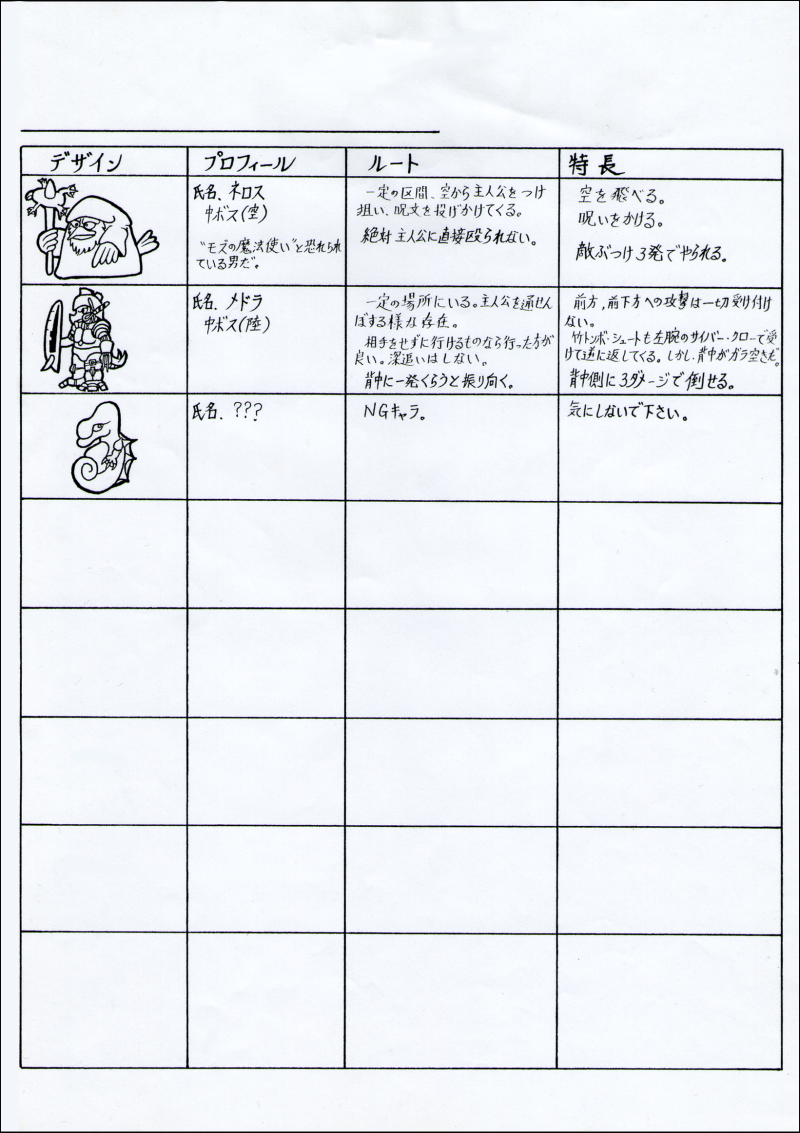 デザイン
プロフィール
ルート
特長
氏名、ネロス
中ボス(空)
"モズの魔法使い"と恐れられ
ている男だ。
一定の区間、空から主人公をつけ
狙い、呪文を投げかけてくる。
絶対主人公に直接殴られない。
空を飛べる。
呪いをかける。
敵ぶつけ3発でやられる。
氏名、メドラ
中ボス(陸)
一定の場所にいる。主人公を通せん
ぼする様な存在。
相手をせずに行けるものなら行った方が
良い。深追いはしない。
背中に一発くらうと振り向く。
前方,前下方への攻撃は一切受け付け
ない。
竹トンボ・シュートも左腕のサイバー・クローで受
けて逆に返してくる。しかし、背中がガラ空きだ。
背中側に3ダメージで倒せる。
氏名、???
NGキャラ。
気にしないで下さい。